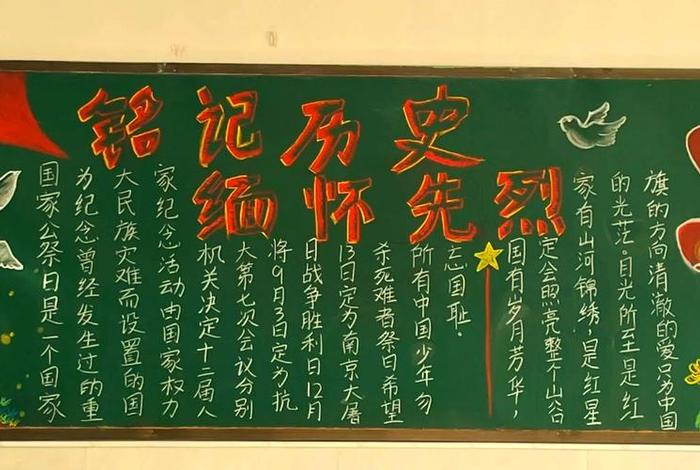 铭记历史
缅怀先烈
国家公祭日是一个国家
为纪念曾经发生过的重
大民族灾难而设置的国
家纪念活动由国家权力
机关决定十二届人
大第七次会议分别
将9月3日定为抗
日战争胜利日12月
13日定为南京大屠
杀死难者祭日希望
所有中国少年勿
忘国耻。
国有岁月芳华，
定会照亮整个山谷
家有山河锦绣，是红星
的光茫。目光所至是红
旗的方向清澈的爱只为中国